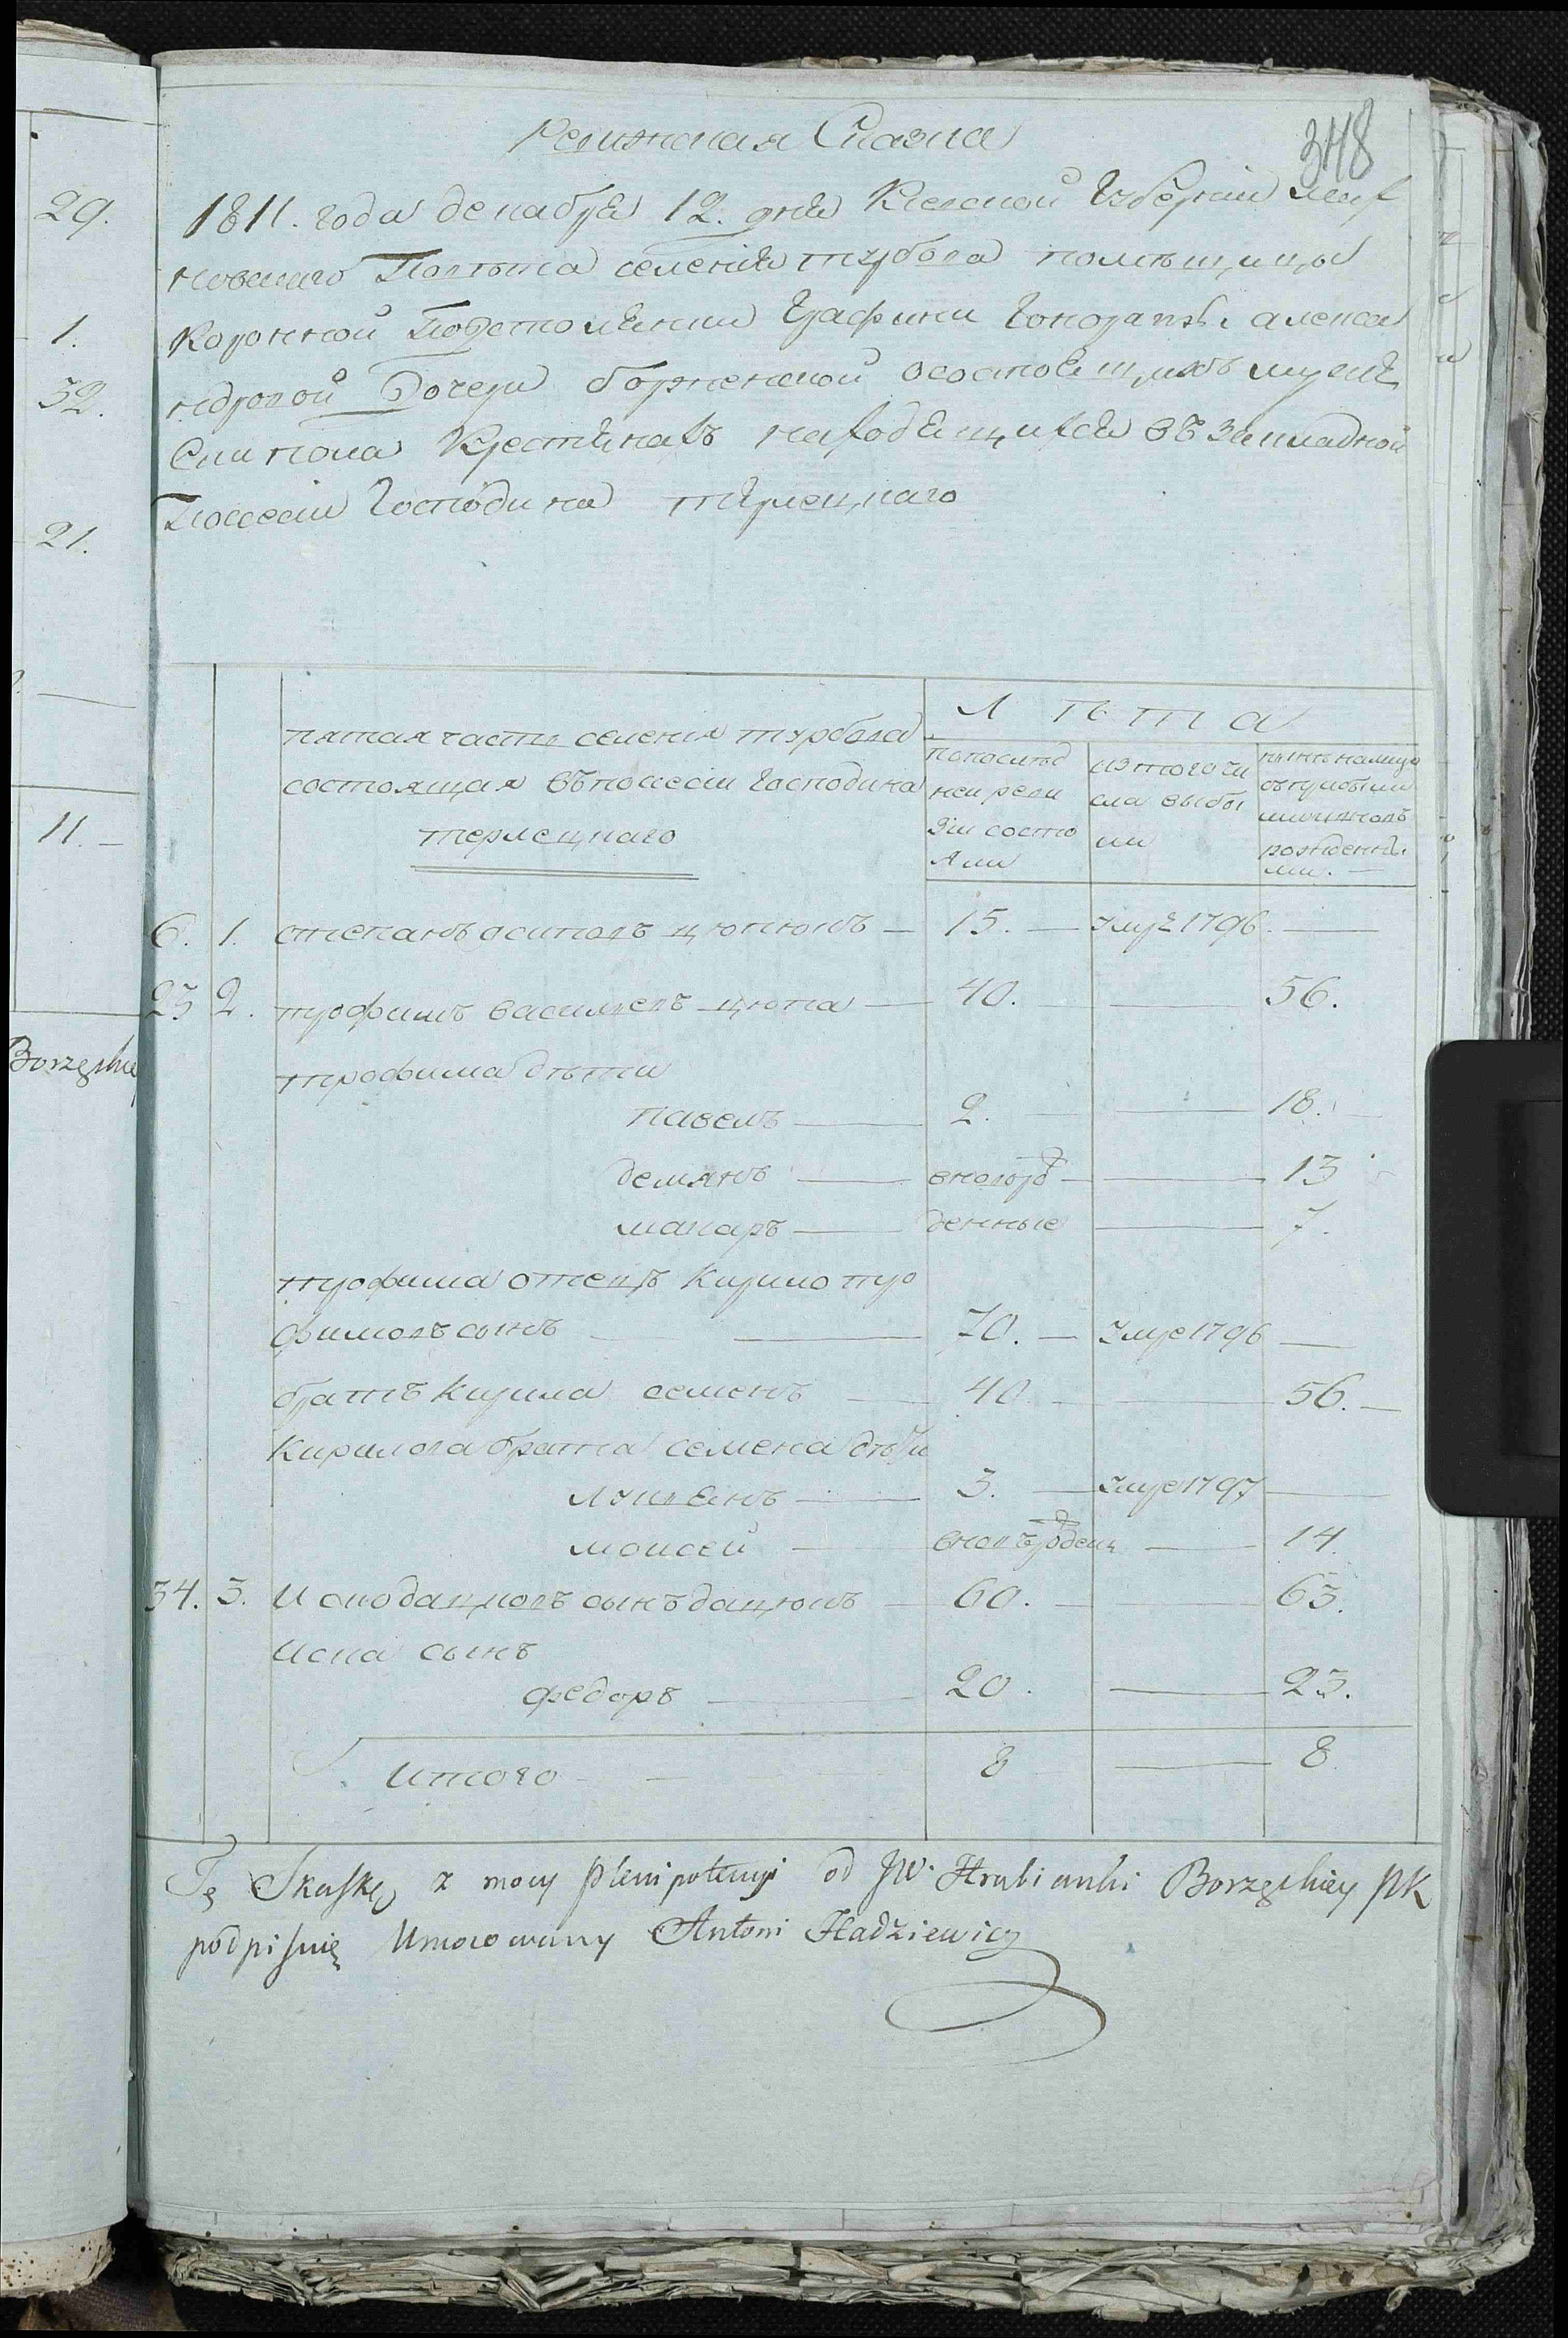 Ревижская Сказка
348
1811. года декабря 12. дня Киевской Губернии Мах
новского Повѣта селения турбова помѣщицы
Коронной Подстолянки Графини Гонораты Алекса
ндровой Дочери борженской осостоящихъ мужеска
Крестянахъ находящихся въ закладной
Поссесіи Господина тѣрлецкаго
пятая часть селенія турбова
состоящая въ поссесіи Господина
терлецкаго
Лѣта
попослѣд
ней реви
зіи состо
яли
изтого чи
сла выбы
ли
нынѣ налицо
рожденны
ми.
6. 1. степанъ осиповъ цюпюкъ 15. Умре 1796.
23 2. трофимъ васильевъ цюпа 40. 56.
трофима дѣти
павелъ 2. 18.
демянъ вновро 13
макаръ денные 7.
трофима отецъ Кирило тро
фимовъ сынъ 70. Умре 1796
братъ Кирила семенъ 40. 56.
Кирилова брата семена дѣти
лукьянъ 3. Умре 1797
моисей вновърожден 14.
34. 3. Иско дацковъ сынъ дацюкъ 60. 63.
Иска сынъ
федоръ 20. 23.
Итого 8 8.
Tę Skaskę z mocy plenipotencyi od JW. Hrabianki Borzęckiey PK
podpisuię Umocowany Antoni Hadziewicz
29.
1.
32.
21.
11.
Borzęckiey